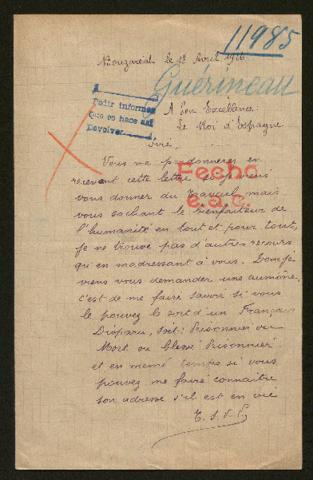 le 12 Avril 1916
11985
Guérineau
Pedir informes
Que se hace así
Devolver
A Son Excellence
Le Roi d'Espagne
Sire,
Vous me pardonnerez en
recevant cette lettre
vous donner du travail mais
vous sachant le bienfaiteur de
l'humanité en tout et pour tout,
je ne trouve pas d'autres recours
qu'en m'adressant à vous. Donc je
viens vous demander une aumône
c'est de me faire savoir si vous
le pouvez le sort d'un Français
Disparu, soit: Prisonnier ou
Mort ou Blessé Prisonnier
et en même temps si vous
pouvez me faire connaître
son adresse s'il est en vie
Fecha
e.a.c.
T.S.V.P.